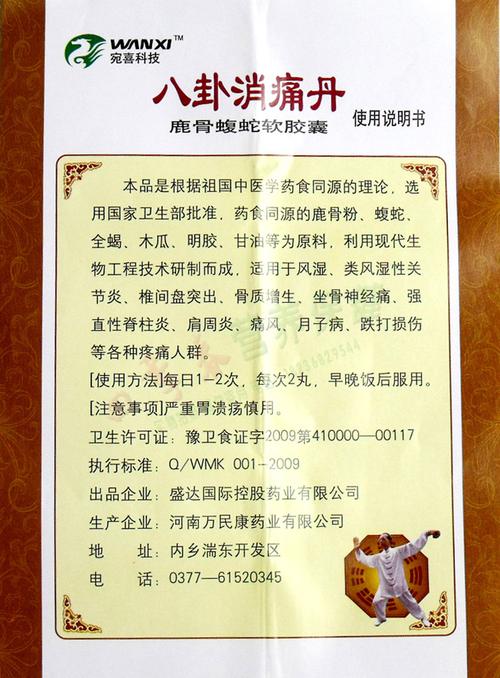 WANXI™
宛喜科技
八卦消痛丹
鹿骨蝮蛇软胶囊
使用说明书
本品是根据祖国中医学药食同源的理论，选
用国家卫生部批准，药食同源的鹿骨粉、蝮蛇、
全蝎、木瓜、明胶、甘油等为原料，利用现代生
物工程技术研制而成，适用于风湿、类风湿性关
节炎、椎间盘突出、骨质增生、坐骨神经痛、强
直性脊柱炎、肩周炎、痛风、月子病、跌打损伤
等各种疼痛人群。
[使用方法]每日1-2次，每次2丸，早晚饭后服用。
[注意事项]严重胃溃疡慎用。
卫生许可证：豫卫食证字2009第410000—00117
执行标准：Q/WMK 001-2009
出品企业：盛达国际控股药业有限公司
生产企业：河南万民康药业有限公司
地　　址：内乡湍东开发区
电　　话：0377—61520345